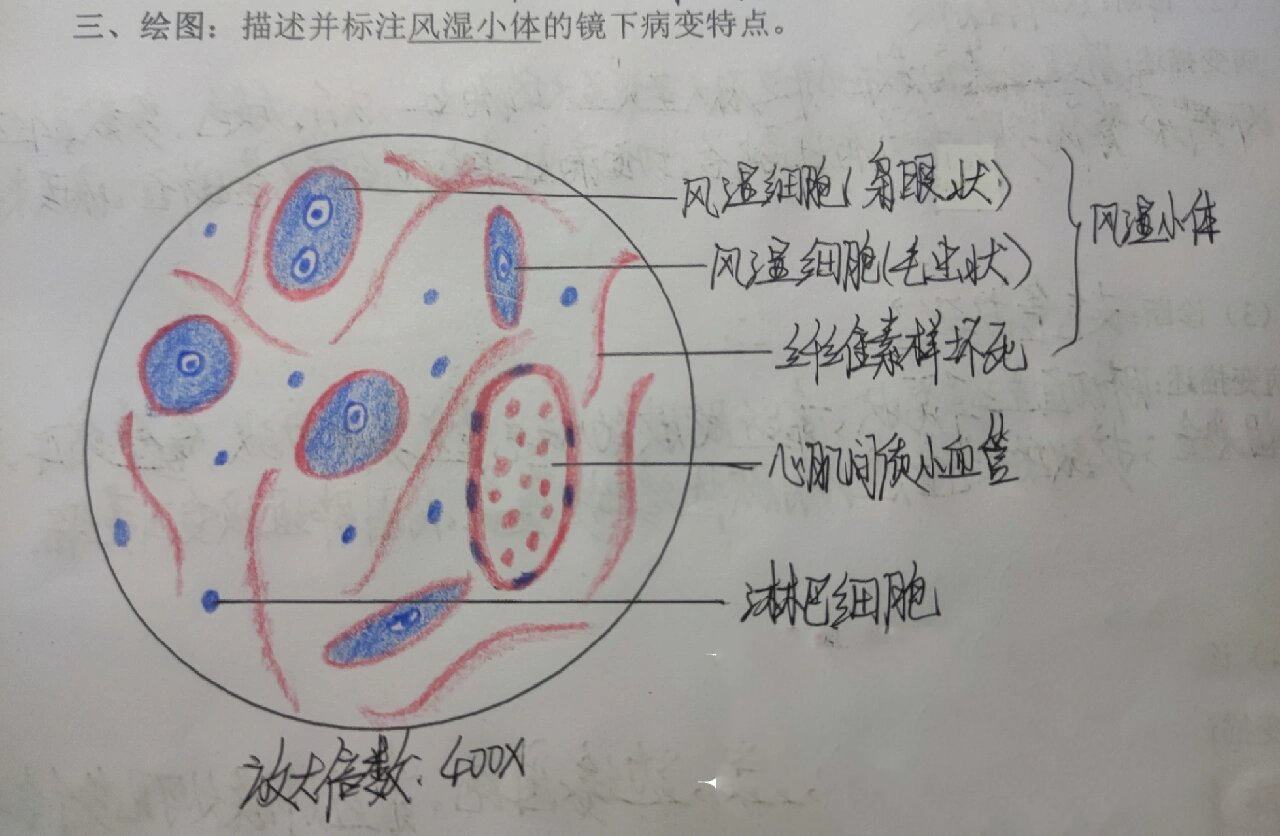 三、绘图：描述并标注风湿小体的镜下病变特点。
风湿细胞(枭眼状)
风湿细胞(毛虫状)
风湿小体
纤维素样坏死
心肌间质小血管
淋巴细胞
放大倍数：400X
(3) 诊断：